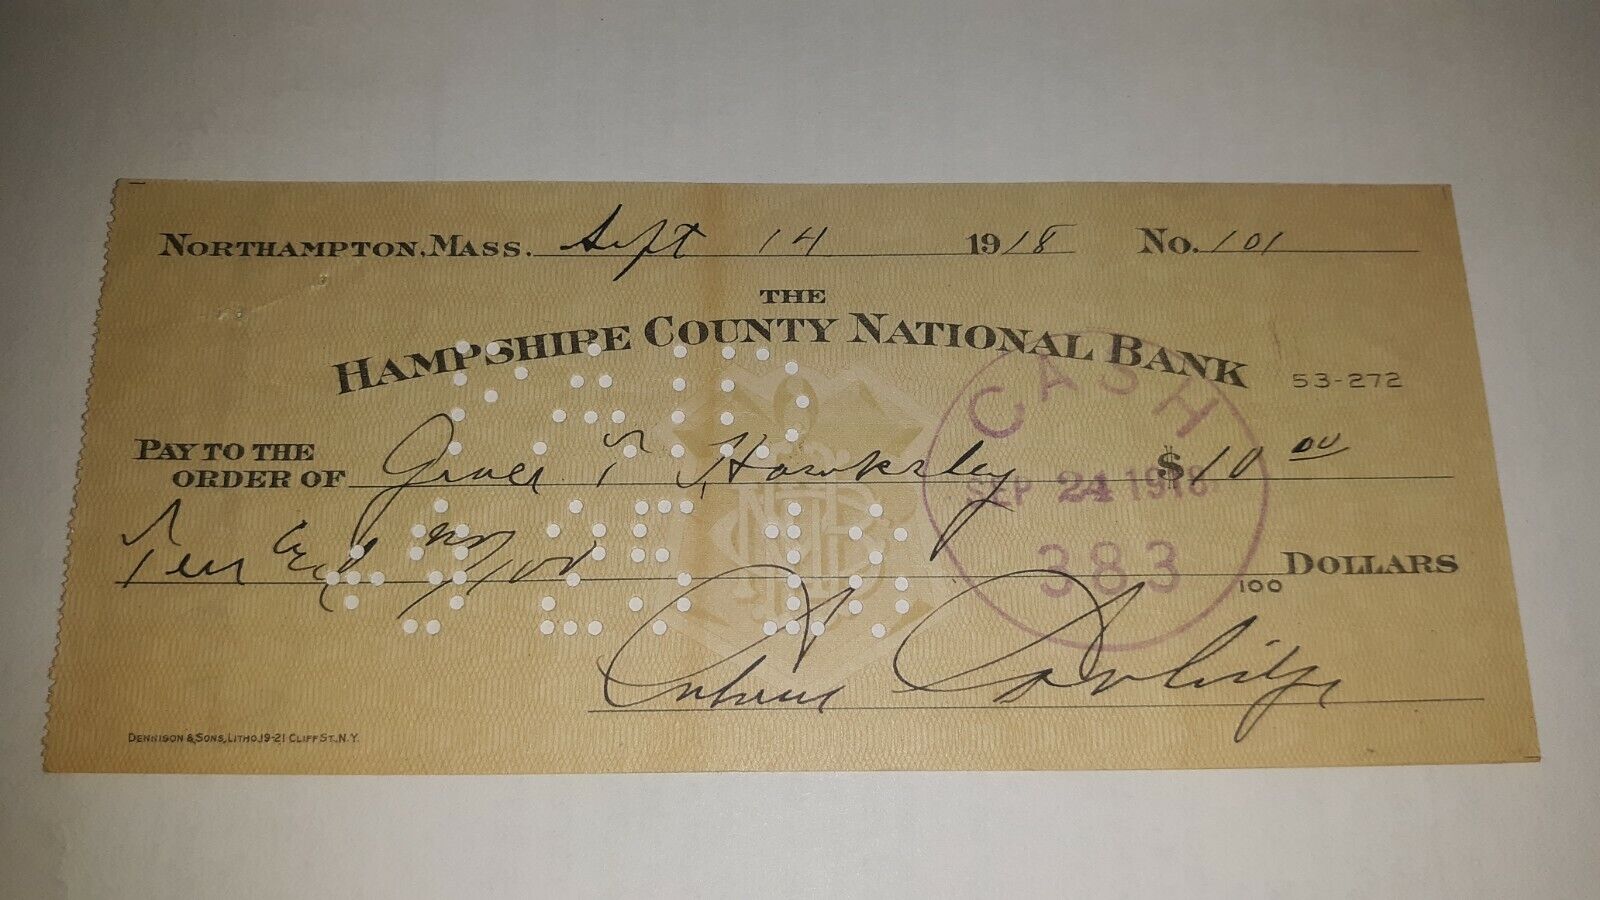 NORTHAMPTON, MASS. Sept 14 1918 No. 101
THE
HAMPSHIRE COUNTY NATIONAL BANK
53-272
PAY TO THE
ORDER OF Grace T. Hawksley $10 00
Ten and no/100
100 DOLLARS
CASH
SEP 24 1918
383
Calvin Coolidge
DENNISON & SONS, LITHO. 19-21 CLIFF ST., N.Y.